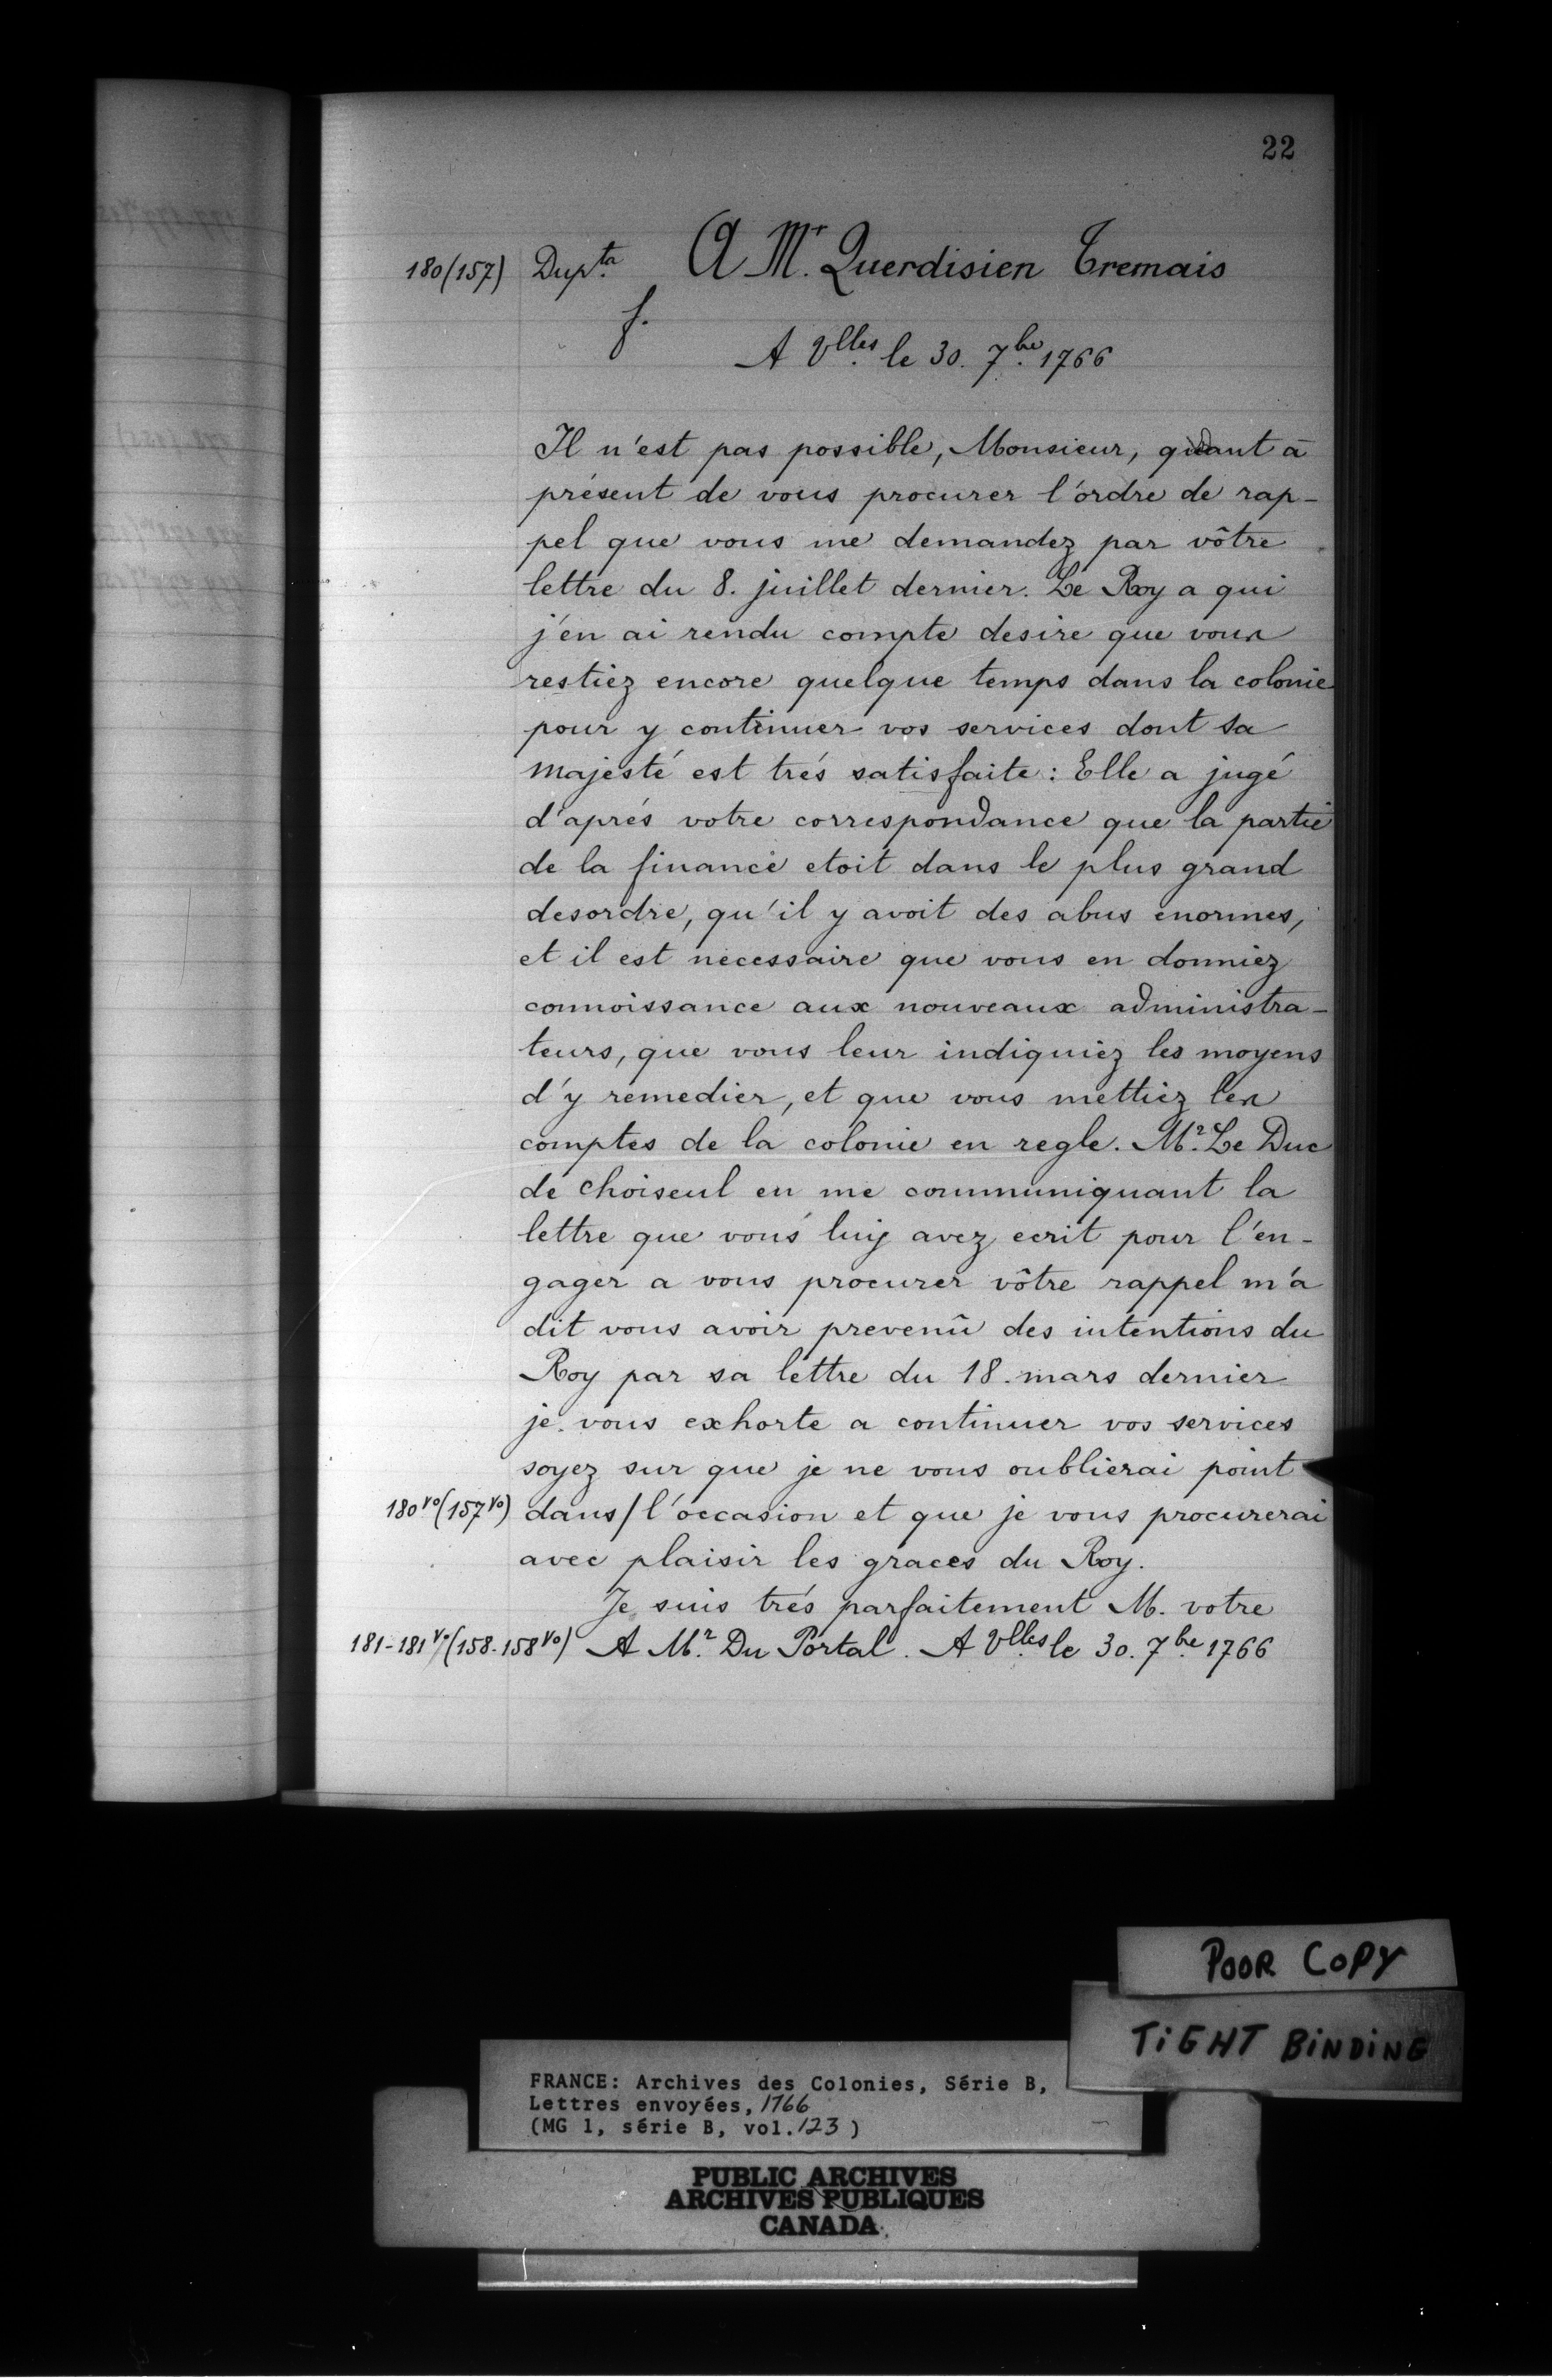 22
180(157) Dup.ta A Mr. Querdisien Tremais
f.
A Vlles le 30. 7.bre 1766
Il n'est pas possible, Monsieur, quant à
présent de vous procurer l'ordre de rap-
pel que vous me demandez par vôtre
lettre du 8. juillet dernier. Le Roy a qui
j'en ai rendu compte desire que vous
restiez encore quelque temps dans la colonie
pour y continuer vos services dont sa
majesté est trés satisfaite: Elle a jugé
d'aprés votre correspondance que la partie
de la finance etoit dans le plus grand
desordre, qu'il y avoit des abus enormes,
et il est necessaire que vous en donniez
connoissance aux nouveaux administra-
teurs, que vous leur indiquiez les moyens
d'y remedier, et que vous mettiez les
comptes de la colonie en regle. Mr. Le Duc
de Choiseul en me communiquant la
lettre que vous luy avez ecrit pour l'en-
gager a vous procurer vôtre rappel m'a
dit vous avoir prevenû des intentions du
Roy par sa lettre du 18. mars dernier
je vous exhorte a continuer vos services
soyez sur que je ne vous oublierai point
180vo(157vo) dans/l'occasion et que je vous procurerai
avec plaisir les graces du Roy.
Je suis trés parfaitement M. votre
181-181vo(158-158vo) A Mr. Du Portal. A Vlles le 30. 7.bre 1766
POOR COPY
TiGHT BiNDiNG
FRANCE: Archives des Colonies, Série B,
Lettres envoyées, 1766
(MG 1, série B, vol. 123)
PUBLIC ARCHIVES
ARCHIVES PUBLIQUES
CANADA